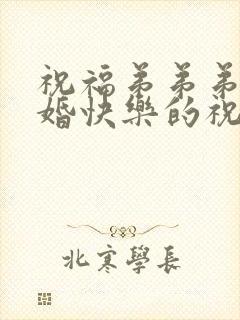 祝福弟弟弟
婚快樂的祝
北寒學長